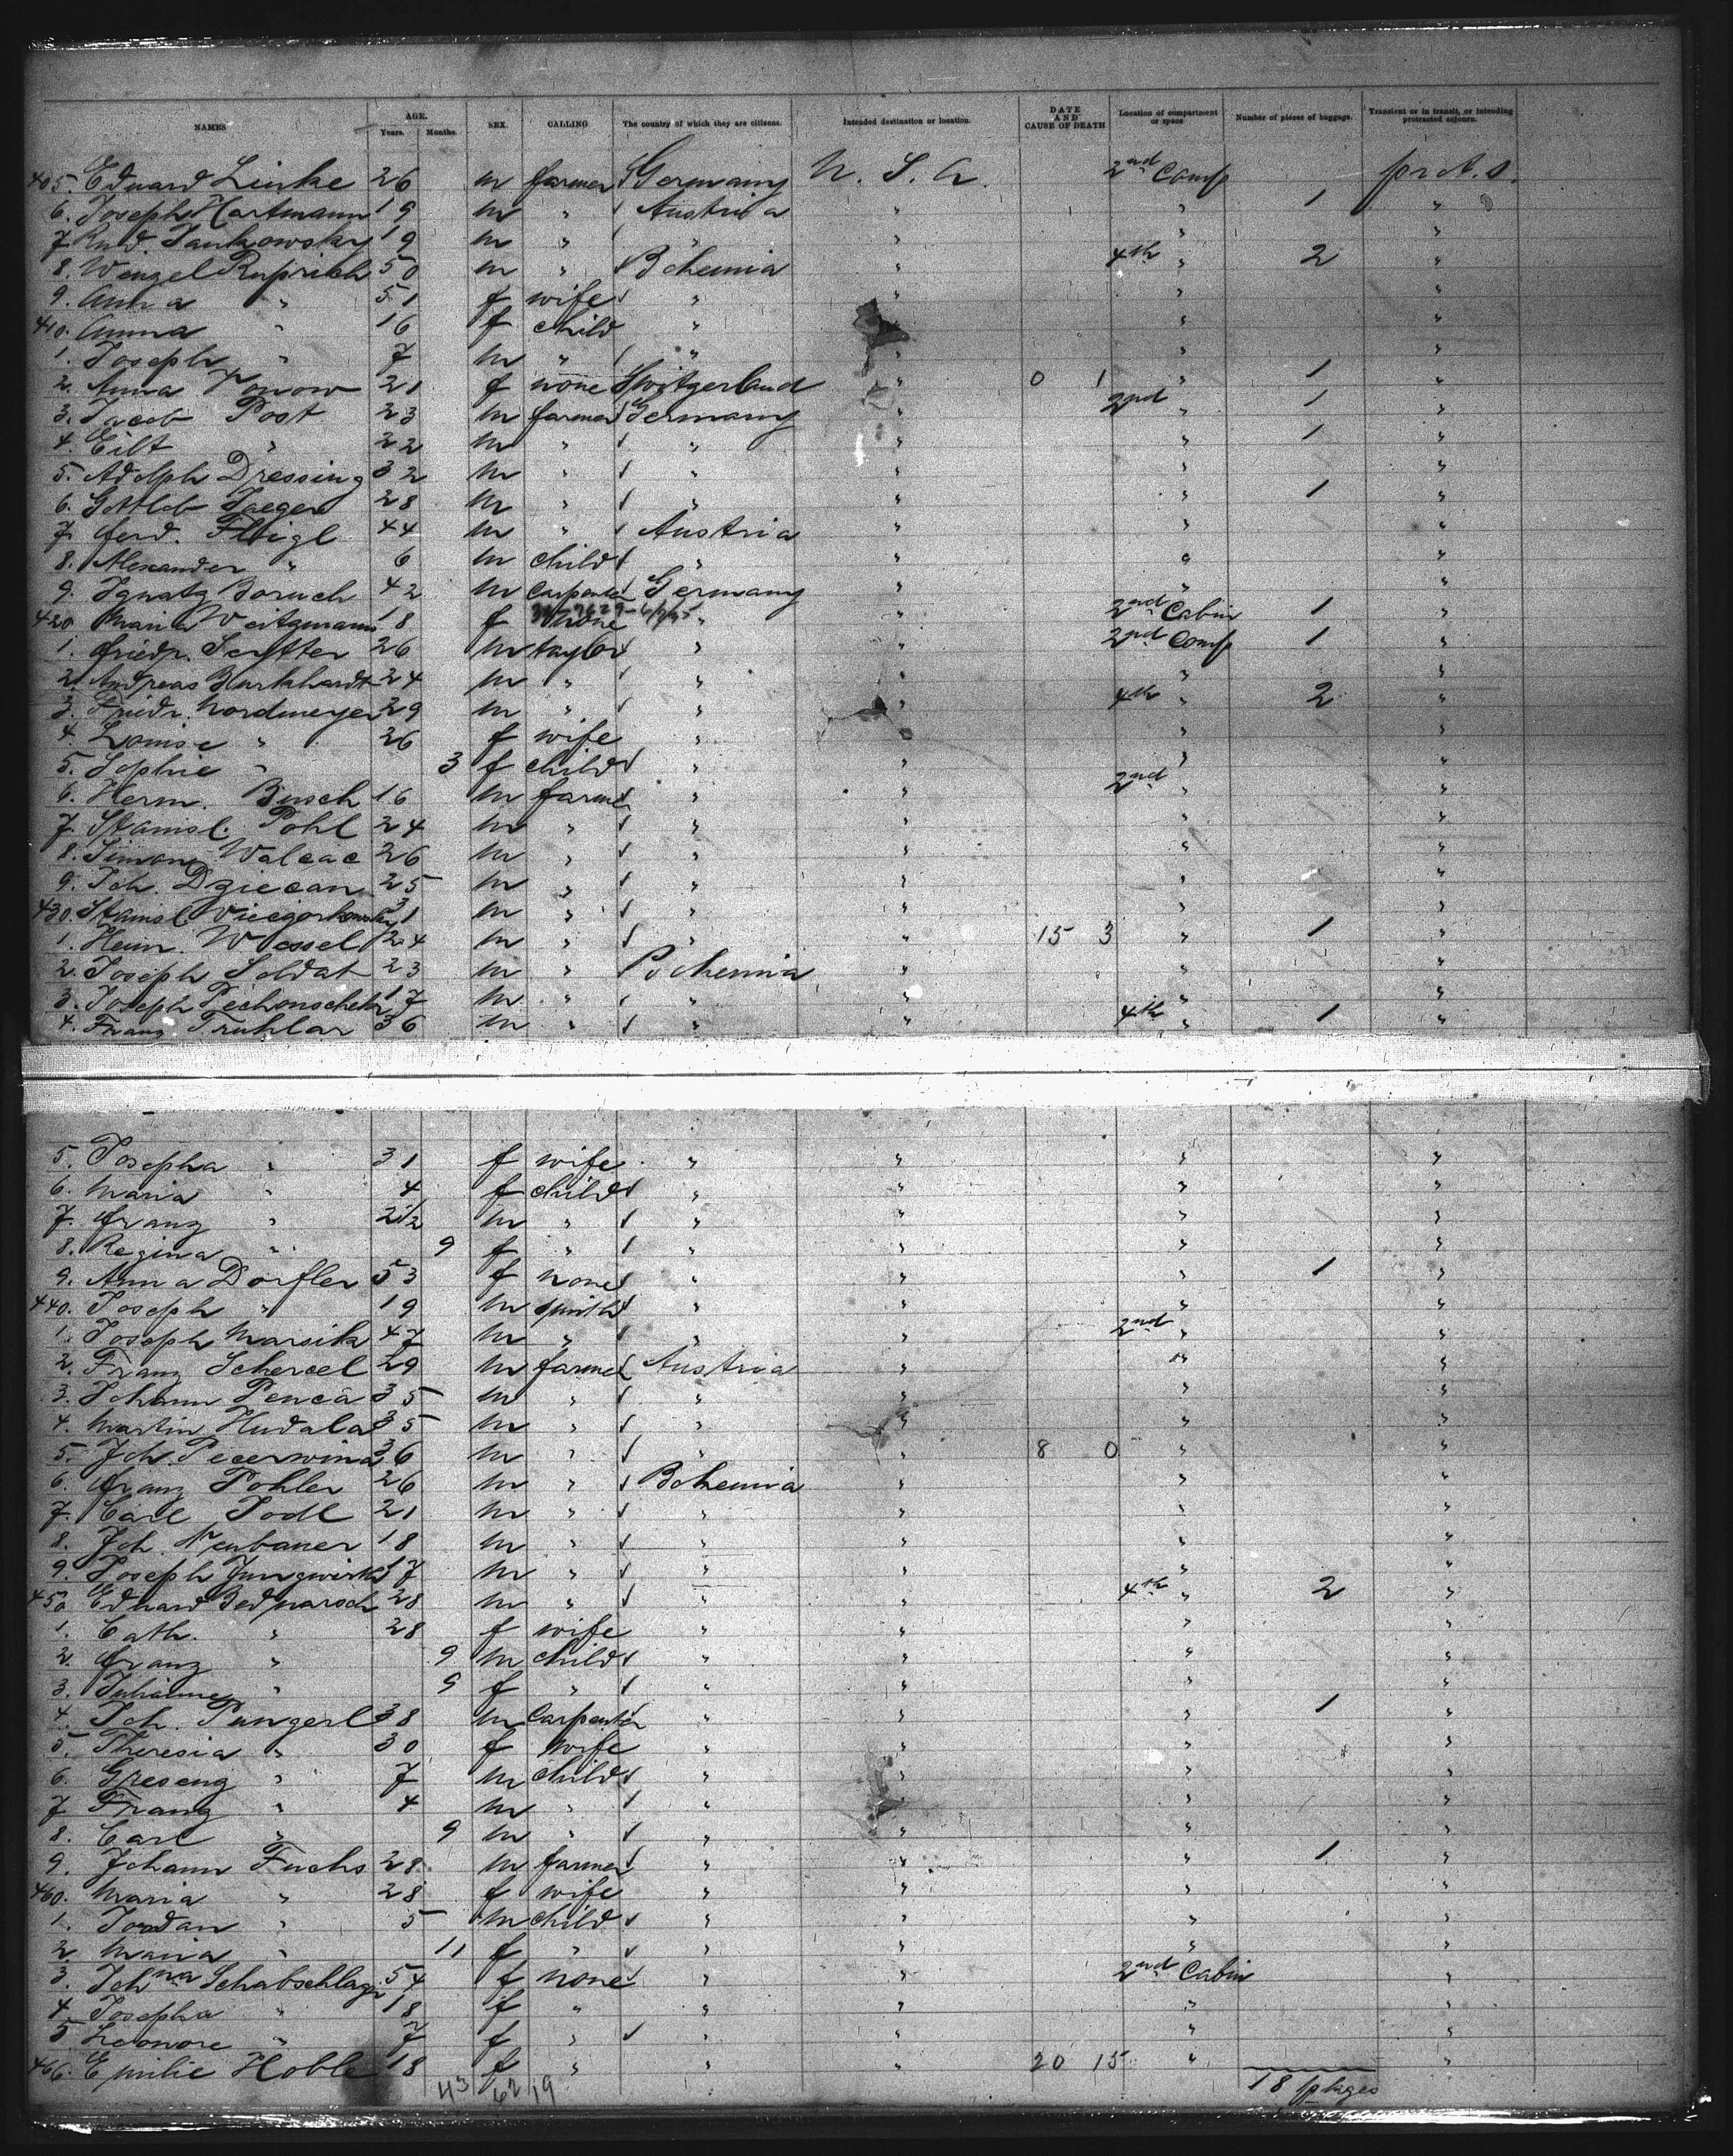 NAMES AGE. Years. Months. SEX. CALLING The country of which they are citizens. Intended destination or location. DATE AND CAUSE OF DEATH Location of compartment or space Number of pieces of baggage. Transient or in transit, or intending protracted sojourn.
405. Eduard Linke 26 m farmer Germany U. S. A. 2nd Comp
6. Joseph Hartmann 19 m " Austria " " 1 "
7 Rud. Jankowsky 19 m " " " " "
8. Wenzel Ruprich 50 m " Bohemia " 4th " 2 "
9. Anna " 51 f wife " " " "
410. Anna " 16 f child " " " "
1. Joseph " 7 m " " " " "
2. Anna 21 f none Switzerland " 0 1 " 1 "
3. Jacob Post 23 m farmer Germany " 2nd " 1 "
4. Eilt " 22 m " " " " 1 "
5. Adolph Dressing 32 m " " " " "
6. Gottlob Jaeger 28 m " " " " 1 "
7 Ferd. Fleigl 44 m " Austria " " "
8. Alexander " 6 m child " " " "
9. Ignatz Boruch 42 m Carpenter Germany " " "
420 Maria Weitzmann 18 f none " " 2nd Cabin 1 "
1. Friedr. 26 m taylor " " 2nd Comp 1 "
2. Andreas Burkhardt 24 m " " " " "
3. Friedr. Nordmeyer 29 m " " " 4th " 2 "
4. Louise " 26 f wife " " " "
5. Sophie " 3 f child " " " "
6. Herm. Busch 16 m farmer " " 2nd " "
7 Stanisl. Pohl 24 m " " " " "
8. Simon Walcac 26 m " " " " "
9. Joh. Dziecan 25 m " " " " "
430. Stanisl. 31 m " " " " "
1. Heinr. Wessel 24 m " " " 15 3 " 1 "
2. Joseph Soldat 23 m " Bohemia " " "
3. Joseph Pechonschek 17 m " " " " "
4. Franz Truhlar 36 m " " " 4th " 1 "
5. Josepha " 31 f wife " " " "
6. Maria " 4 f child " " " "
7. Franz " 2 1/2 m " " " " "
8. Regina " 9 f " " " " "
9. Anna Dorfler 53 f none " " " 1 "
440. Joseph " 19 m smith " " " "
1. Joseph Marsik 47 m " " " 2nd " "
2. Franz Schercel 29 m farmer Austria " " "
3. Johann Penca 35 m " " " " "
4. Martin Hudala 35 m " " " " "
5. Joh. Pecerwina 36 m " " " 8 0 " "
6. Franz Pohler 26 m " Bohemia " " "
7. Carl Jodl 21 m " " " " "
8. Joh. Neubauer 18 m " " " " "
9. Joseph Jungwirth 17 m " " " " "
450 Eduard Bednarsch 28 m " " " 4th " 2 "
1. Cath. " 28 f wife " " " "
2. Franz " 9 m child " " " "
3. " 9 f " " " " "
4. Joh. Pungerl 38 m Carpenter " " " 1 "
5. Theresia " 30 f wife " " " "
6. " 7 m child " " " "
7 Franz " 4 m " " " " "
8. Carl " 9 m " " " " "
9. Johann Fuchs 28 m farmer " " " 1 "
460. Maria " 28 f wife " " " "
1. Jordan " 5 m child " " " "
2. Maria " 11 f " " " " "
3. Johna Schabschlager 54 f none " " 2nd Cabin "
4. Josepha " 18 f " " " " "
5 Leonore " 7 f " " " " "
466. Emilie Hoble 18 f " " " 20 15 " "
43 62 19 18 pkges